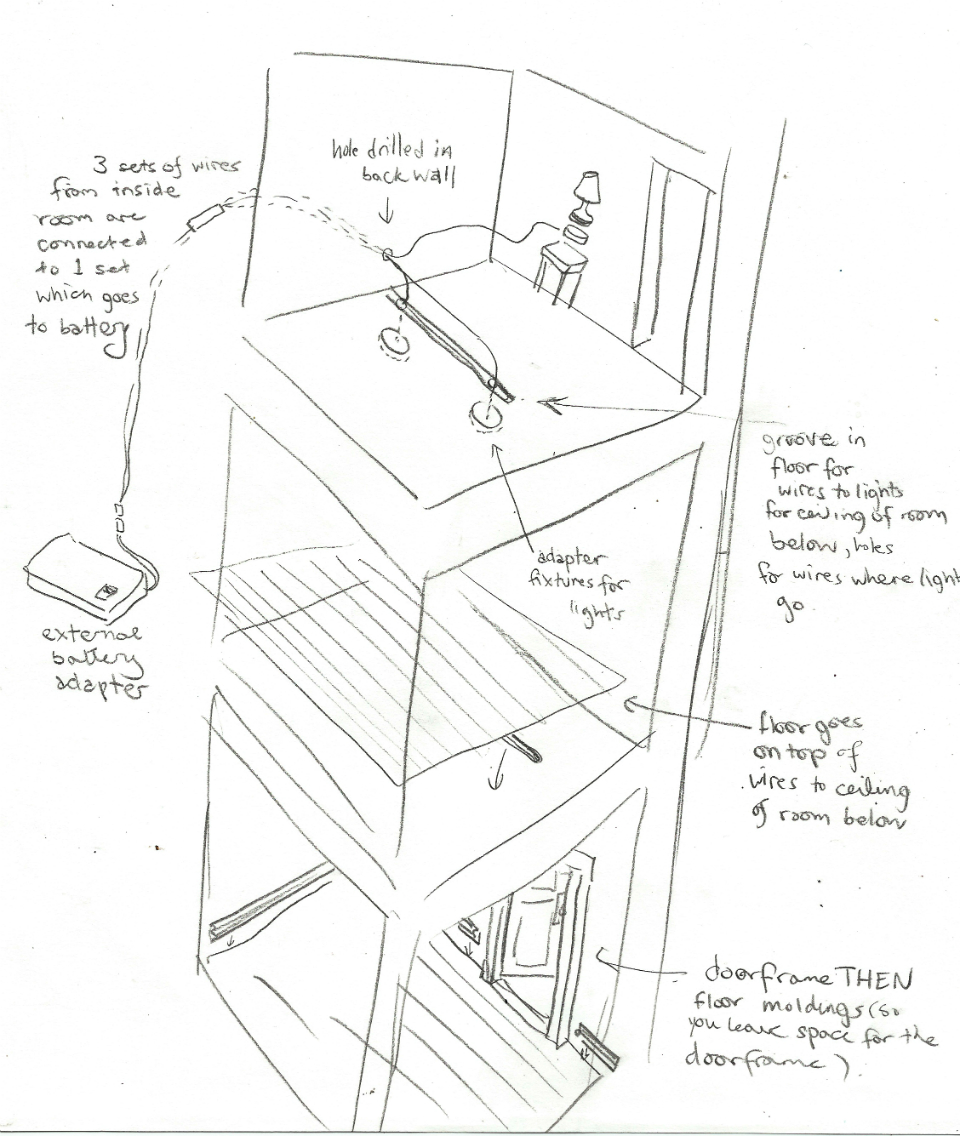 3 sets of wires
from inside
room are
connected
to 1 set
which goes
to battery
hole drilled in
back wall
groove in
floor for
wires to lights
for ceiling of room
below, holes
for wires where light
go
adapter
fixtures for
lights
external
battery
adapter
floor goes
on top of
wires to ceiling
of room below
doorframe THEN
floor moldings (so
you leave space for the
doorframe)